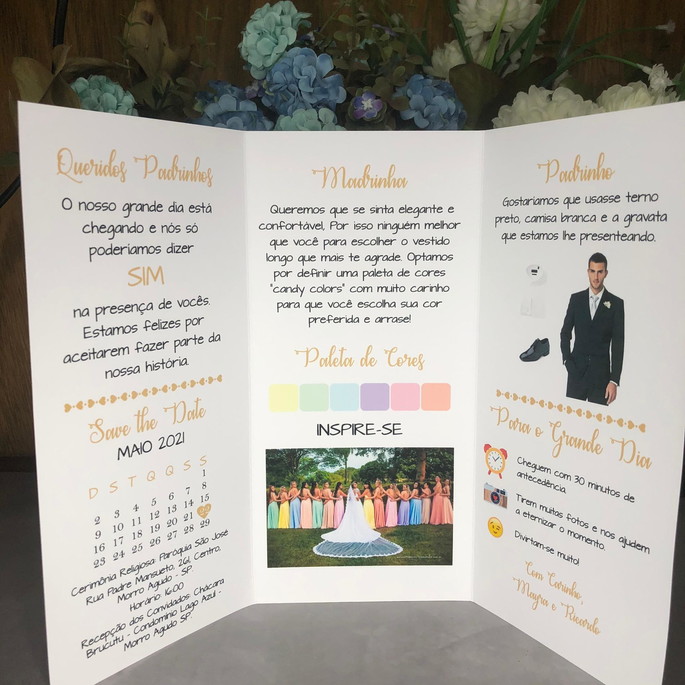 Queridos Padrinhos
O nosso grande dia está
chegando e nós só
poderiamos dizer
SIM
na presença de vocês.
Estamos felizes por
aceitarem fazer parte da
nossa história.
Save the Date
MAIO 2021
D S T Q Q S S
1
2 3 4 5 6 7 8
9 10 11 12 13 14 15
16 17 18 19 20 21
23 24 25 26 27 28 29
Cerimônia Religiosa Paróquia São José
Rua Padre Mansueto, 261, Centro,
Morro Agudo - SP.
Horário: 16:00
Recepção dos Convidados Chácara
Brucutu - Condomínio Lago Azul -
Morro Agudo SP.
Madrinha
Queremos que se sinta elegante e
confortável, Por isso ninguém melhor
que você para escolher o vestido
longo que mais te agrade. Optamos
por definir uma paleta de cores
"candy colors" com muito carinho
para que você escolha sua cor
preferida e arrase!
Paleta de Cores
INSPIRE-SE
Padrinho
Gostariamos que usasse terno
preto, camisa branca e a gravata
que estamos lhe presenteando.
Para o Grande Dia
Cheguem com 30 minutos de
antecedência.
Tirem muitas fotos e nos ajudem
a eternizar o momento.
Divirtam-se muito!
Com Carinho,
Mayra e Ricardo